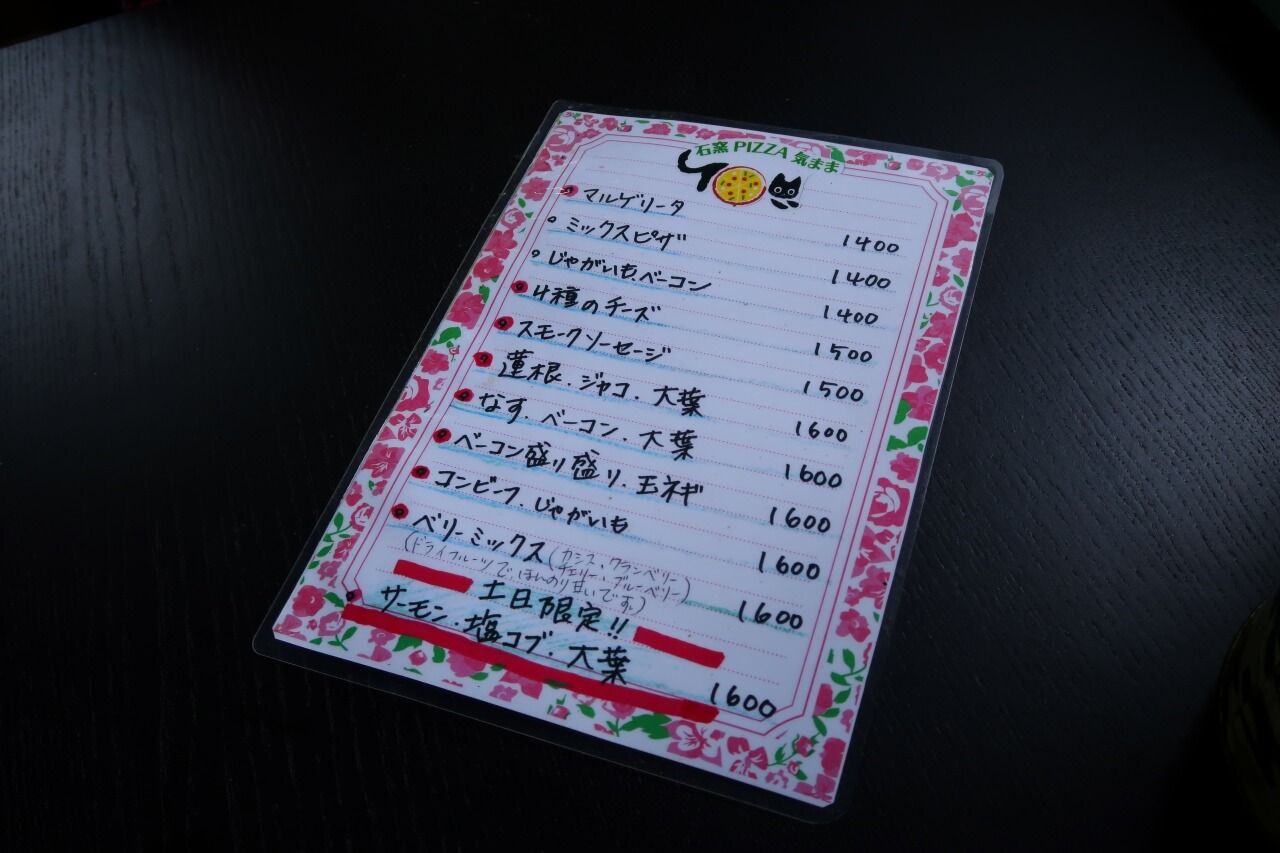 石窯 PIZZA 気まま
マルゲリータ 1400
ミックスピザ 1400
じゃがいも、ベーコン 1400
4種のチーズ 1500
スモークソーセージ 1500
蓮根.ジャコ.大葉 1600
なす.ベーコン.大葉 1600
ベーコン盛り盛り.玉ネギ 1600
コンビーフ.じゃがいも 1600
ベリーミックス(カシス、クランベリー
チェリー、ブルーベリー) 1600
(ドライフルーツで、ほんのり甘いです。)
土日限定!!
サーモン.塩コブ.大葉 1600